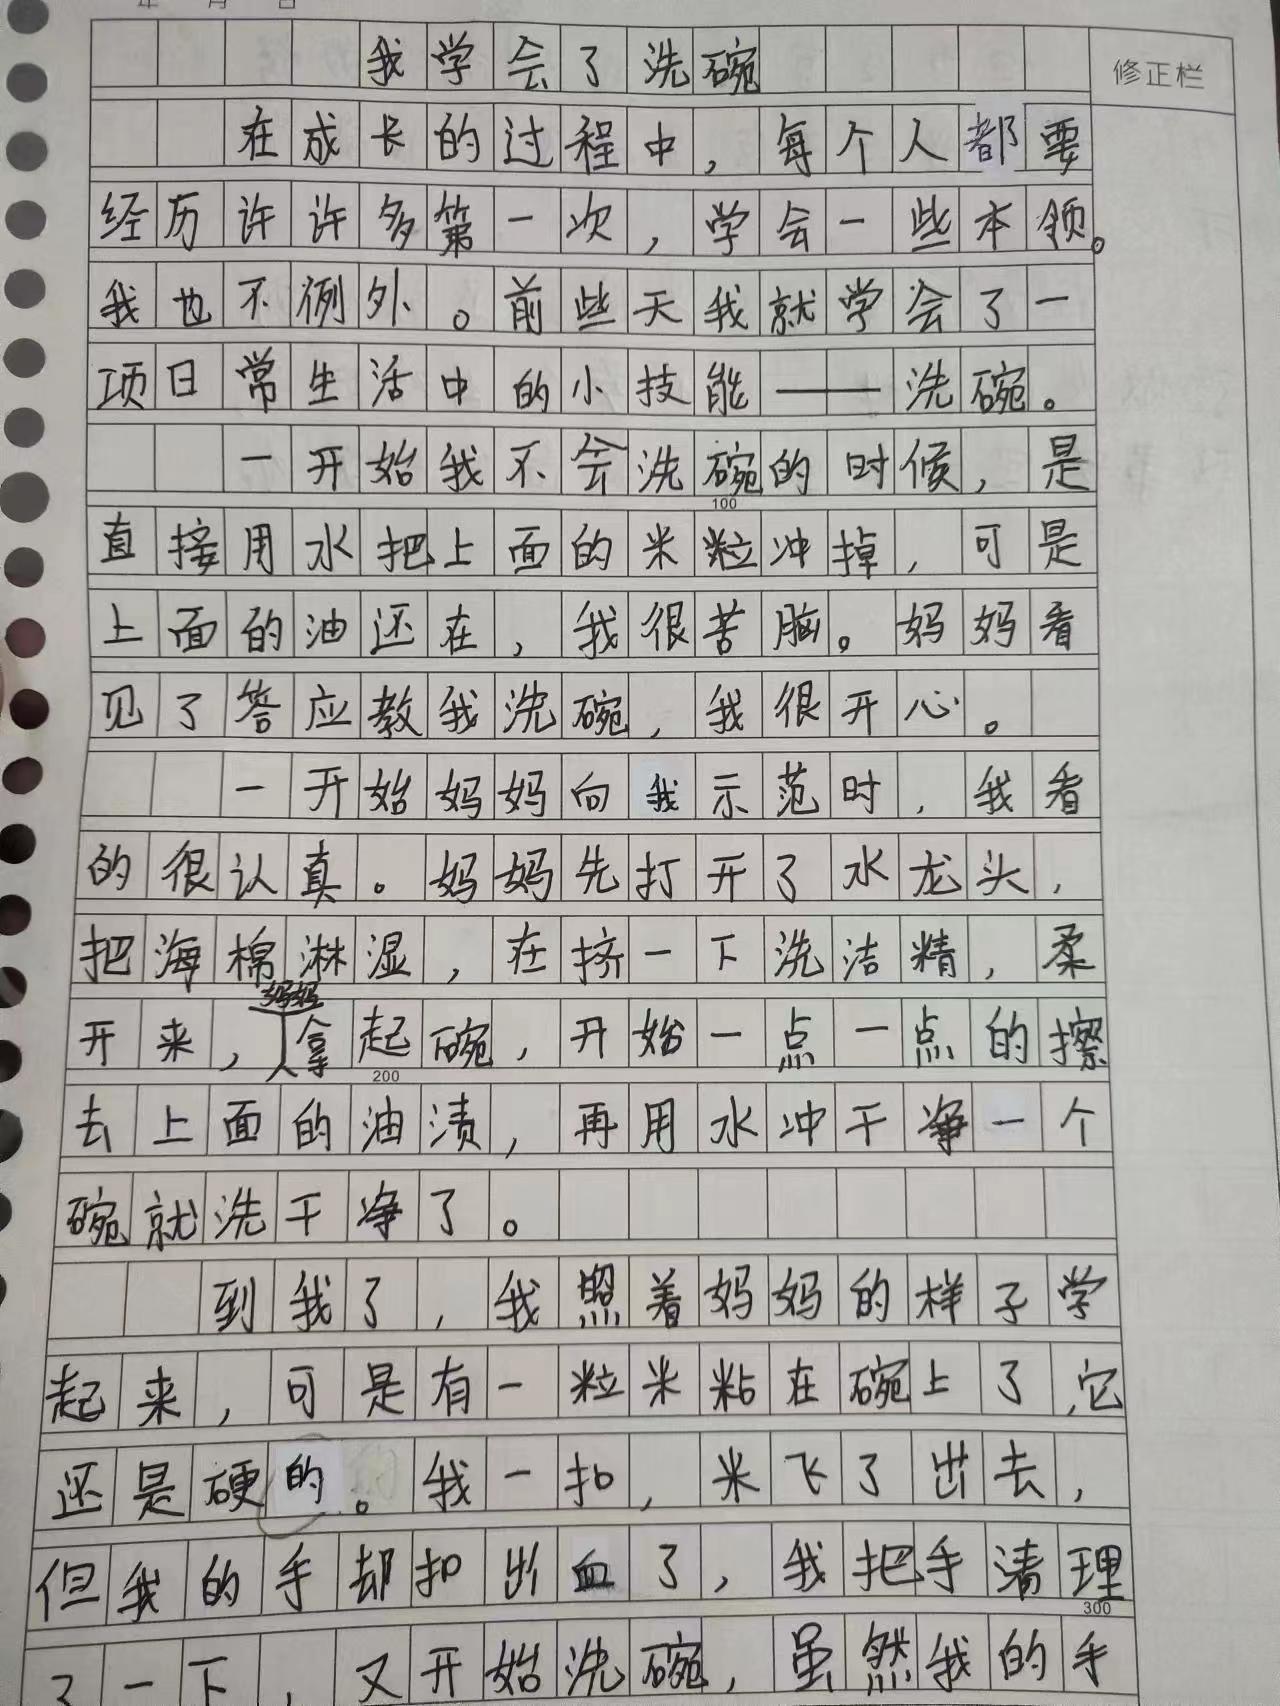 年 月 日
我学会了洗碗
修正栏
在成长的过程中，每个人都要
经历许许多第一次，学会一些本领。
我也不例外。前些天我就学会了一
项日常生活中的小技能——洗碗。
一开始我不会洗碗的时候，是
100
直接用水把上面的米粒冲掉，可是
上面的油还在，我很苦脑。妈妈看
见了答应教我洗碗，我很开心。
一开始妈妈向我示范时，我看
的很认真。妈妈先打开了水龙头，
把海棉淋湿，在挤一下洗洁精，柔
开来，妈妈拿起碗，开始一点一点的擦
200
去上面的油渍，再用水冲干净一个
碗就洗干净了。
到我了，我照着妈妈的样子学
起来，可是有一粒米粘在碗上了，它
还是硬的。我一扣，米飞了出去，
但我的手却扣出血了，我把手清理
300
了一下，又开始洗碗，虽然我的手